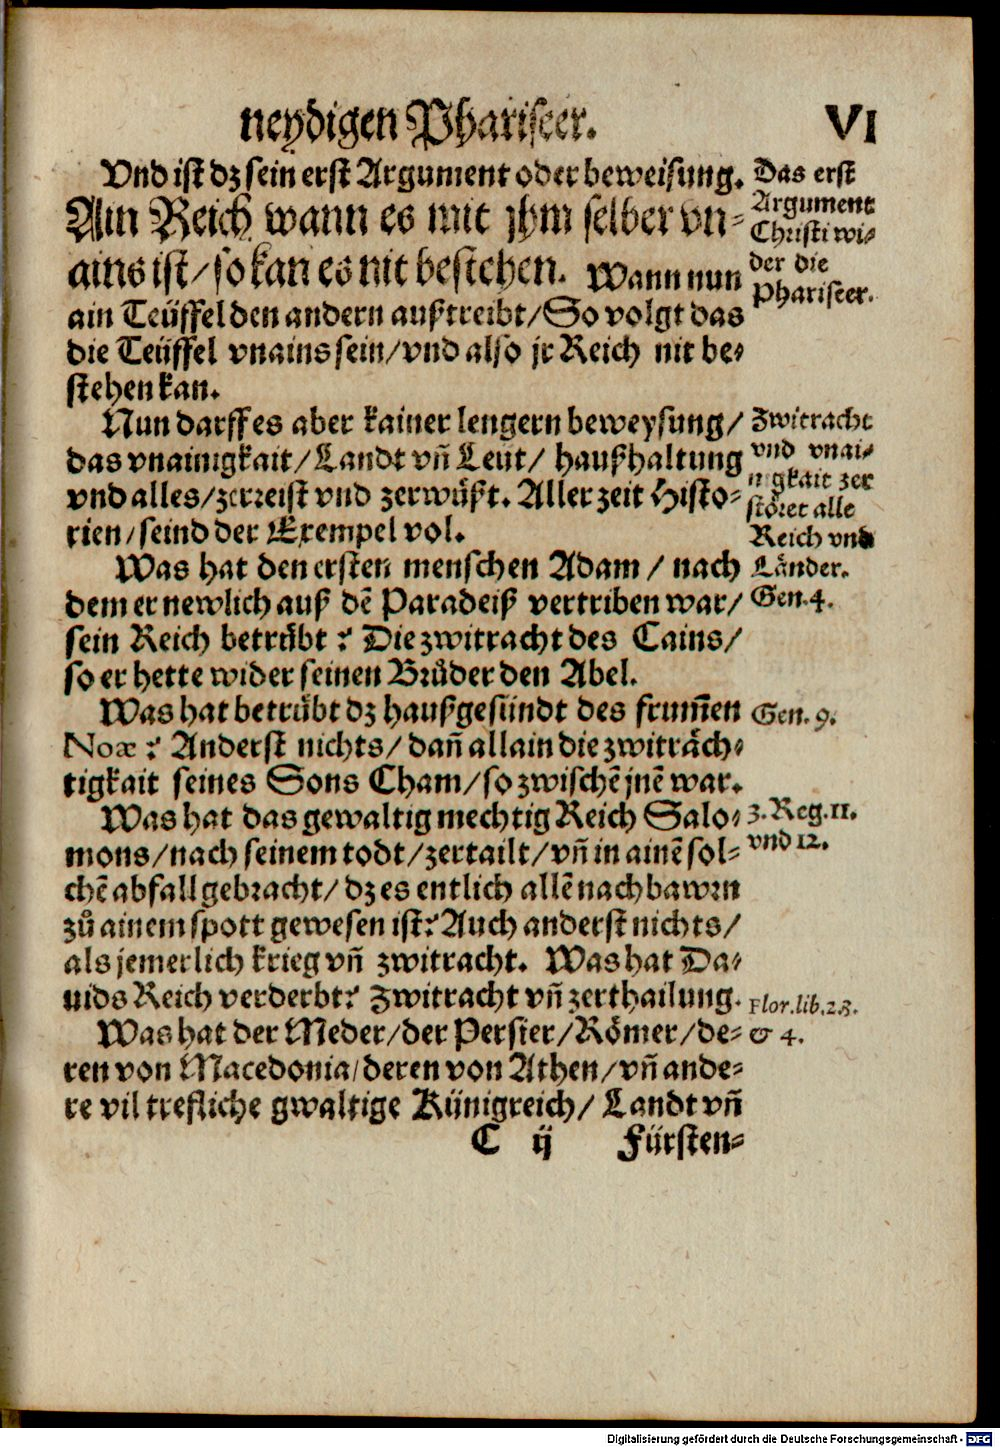 neydigen Phariseer. VI
Vnd ist dz sein erst Argument oder beweisung.
Ain Reich wann es mit jhm selber vn-
ains ist/ so kan es nit bestehen. Wann nun
ain Teüffel den andern außtreibt/ So volgt das
die Teüffel vnains sein/ vnd also jr Reich nit be-
stehen kan.
Das erst
Argument
Christi wi-
der die
Phariseer.
Nun darff es aber kainer lengern beweysung/
das vnainigkait/ Landt vn̄ Leüt/ haußhaltung
vnd alles/ zerreist vnd zerwüßt. Aller zeit Histo-
rien/ seind der Exempel vol.
Zwitracht
vnd vnai-
nigkait zer
störet alle
Reich vnd
Länder.
Was hat den ersten menschen Adam / nach
dem er newlich auß dē Paradeiß vertriben war/
sein Reich betrübt? Die zwitracht des Cains/
so er hette wider seinen Brůder den Abel.
Gen. 4.
Was hat betrübt dz haußgesündt des frum̄en
Noæ? Anderst nichts/ dañ allain die zwiträch-
tigkait seines Sons Cham/ so zwischē jnē war.
Gen. 9.
Was hat das gewaltig mechtig Reich Salo-
mons/ nach seinem todt/ zertailt/ vn̄ in ainē sol-
chē abfall gebracht/ dz es entlich allē nachbawrn
zů ainem spott gewesen ist? Auch anderst nichts/
als jemerlich krieg vn̄ zwitracht. Was hat Da-
uids Reich verderbt? Zwitracht vn̄ zerthailung.
3. Reg. 11.
vnd 12.
Was hat der Meder/ der Persier/ Römer/ de-
ren von Macedonia/ deren von Athen/ vn̄ ande-
re vil trefliche gwaltige Künigreich/ Landt vn̄
Flor. lib. 2. 3.
& 4.
C ij Fürsten-
Digitalisierung gefördert durch die Deutsche Forschungsgemeinschaft - DFG